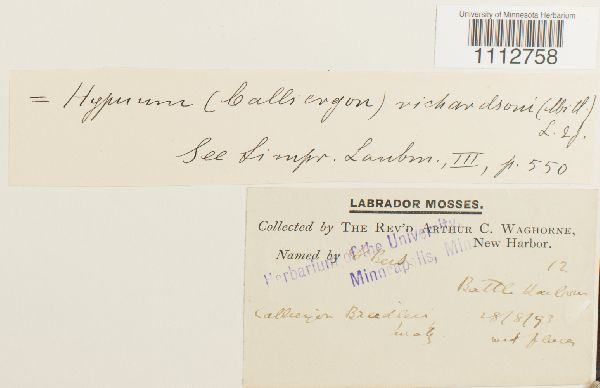 University of Minnesota Herbarium
1112758
= Hypnum (Calliergon) richardsoni (Mitt)
L. & J.
See Limpr. Laubm., III, p. 550
LABRADOR MOSSES.
Collected by THE REV'D ARTHUR C. WAGHORNE,
New Harbor.
Named by
Herbarium of the University
Minneapolis, Minn
12
Battle Harbour
Calliergon Breidleri 28/8/93
wet places